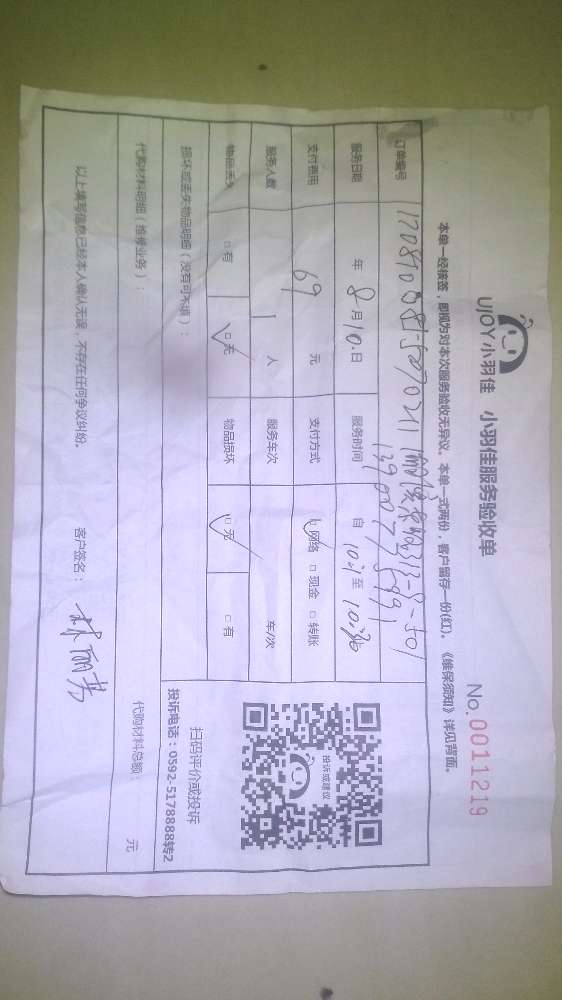 UJOY小羽佳 小羽佳服务验收单
No.0011219
本单一经核签,即视为对本次服务验收无异议。本单一式两份,客户留存一份(红)。《维保须知》详见背面。
订单编号
服务日期 年 8月10日 服务时间 自 至
支付费用 69 元 支付方式 网络 现金 转账
服务人数 1 人 服务车次 车/次
物品丢失 有 无 物品损坏 无 有
损坏或丢失物品明细(没有可不填):
投诉或建议
扫码评价或投诉
投诉电话:0592-5178888转2
代购材料明细(维修业务): 代购材料总额: 元
以上填写信息已经本人确认无误,不存在任何争议纠纷。 客户签名: